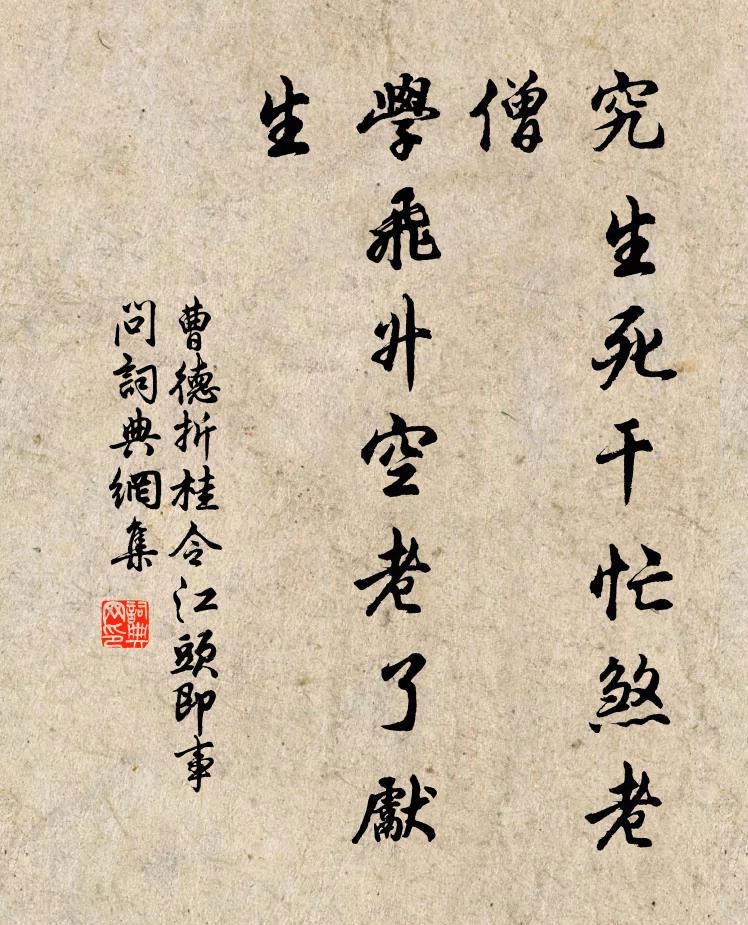 究生死干忙煞老
僧
學飛升空老了獻
生
曹德折桂令江頭即事
問詞典網集
詞典
网印